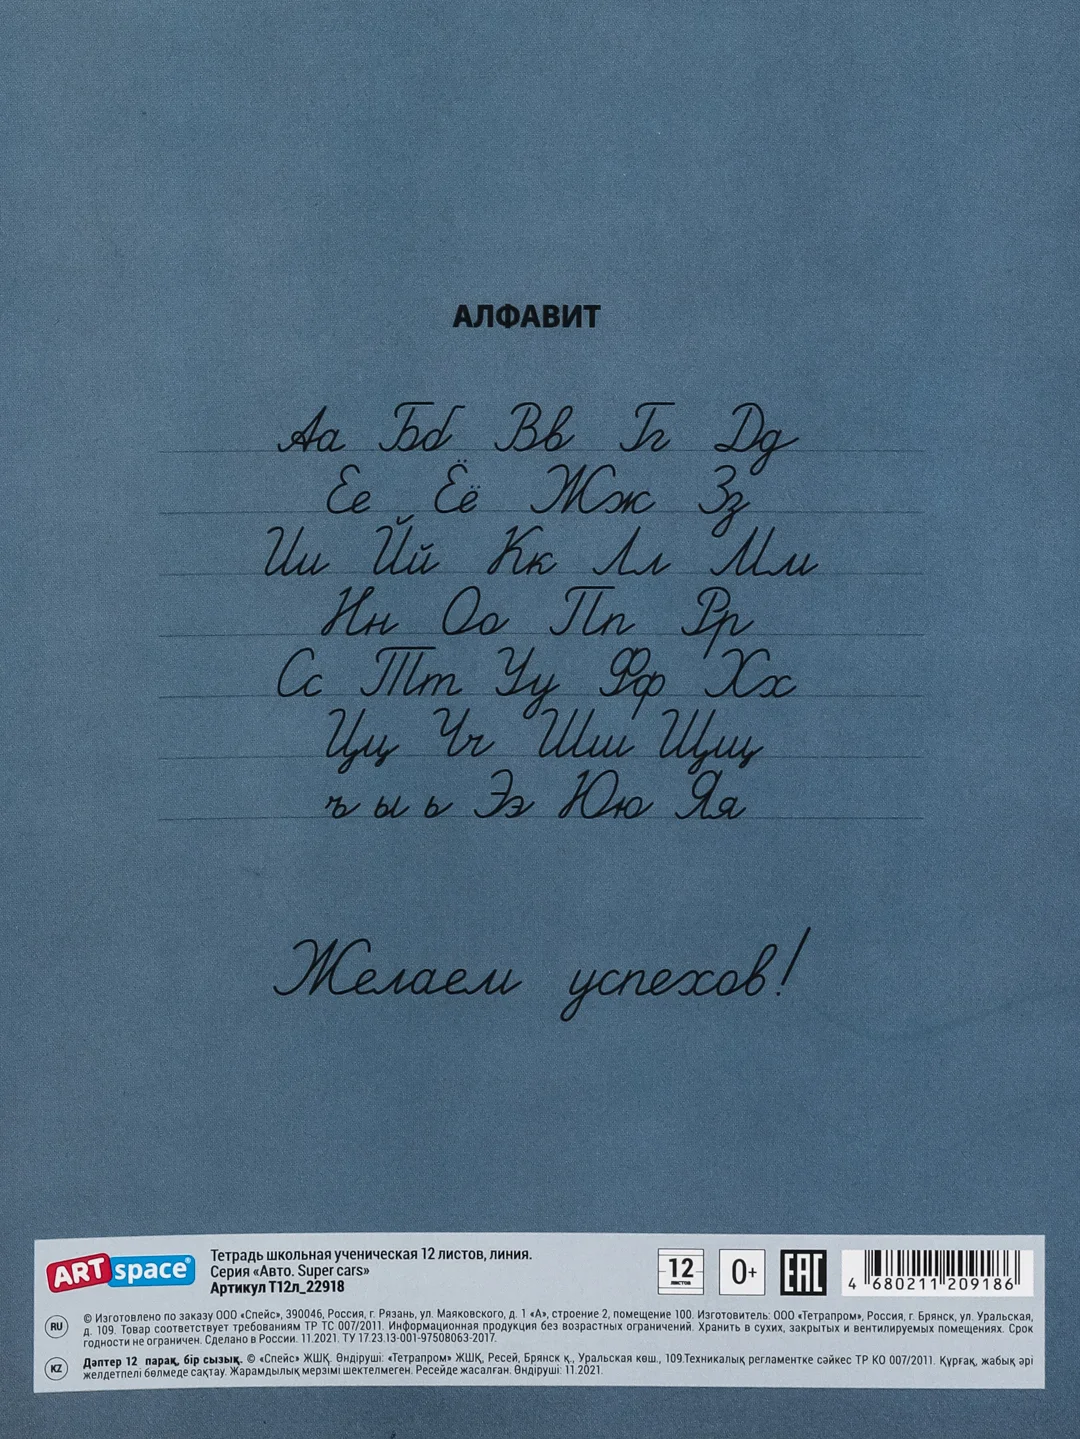 АЛФАВИТ
Аа Бб Вв Гг Дд
Ее Ёё Жж Зз
Ии Йй Кк Лл Мм
Нн Оо Пп Рр
Сс Тт Уу Фф Хх
Цц Чч Шш Щщ
ъ ы ь Ээ Юю Яя
Желаем успехов!
ART space®
Тетрадь школьная ученическая 12 листов, линия.
Серия «Авто. Super cars»
Артикул Т12л_22918
12
листов
0+
EAC
4 680211 209186
RU
© Изготовлено по заказу ООО «Спейс», 390046, Россия, г. Рязань, ул. Маяковского, д. 1 «А», строение 2, помещение 100. Изготовитель: ООО «Тетрапром», Россия, г. Брянск, ул. Уральская,
д. 109. Товар соответствует требованиям ТР ТС 007/2011. Информационная продукция без возрастных ограничений. Хранить в сухих, закрытых и вентилируемых помещениях. Срок
годности не ограничен. Сделано в России. 11.2021. ТУ 17.23.13-001-97508063-2017.
KZ
Дәптер 12 парақ, бір сызық. © «Спейс» ЖШҚ. Өндіруші: «Тетрапром» ЖШҚ, Ресей, Брянск қ., Уральская көш., 109.Техникалық регламентке сәйкес ТР КО 007/2011. Құрғақ, жабық әрі
желдетпелі бөлмеде сақтау. Жарамдылық мерзімі шектелмеген. Ресейде жасалған. Өндіруші: 11.2021.